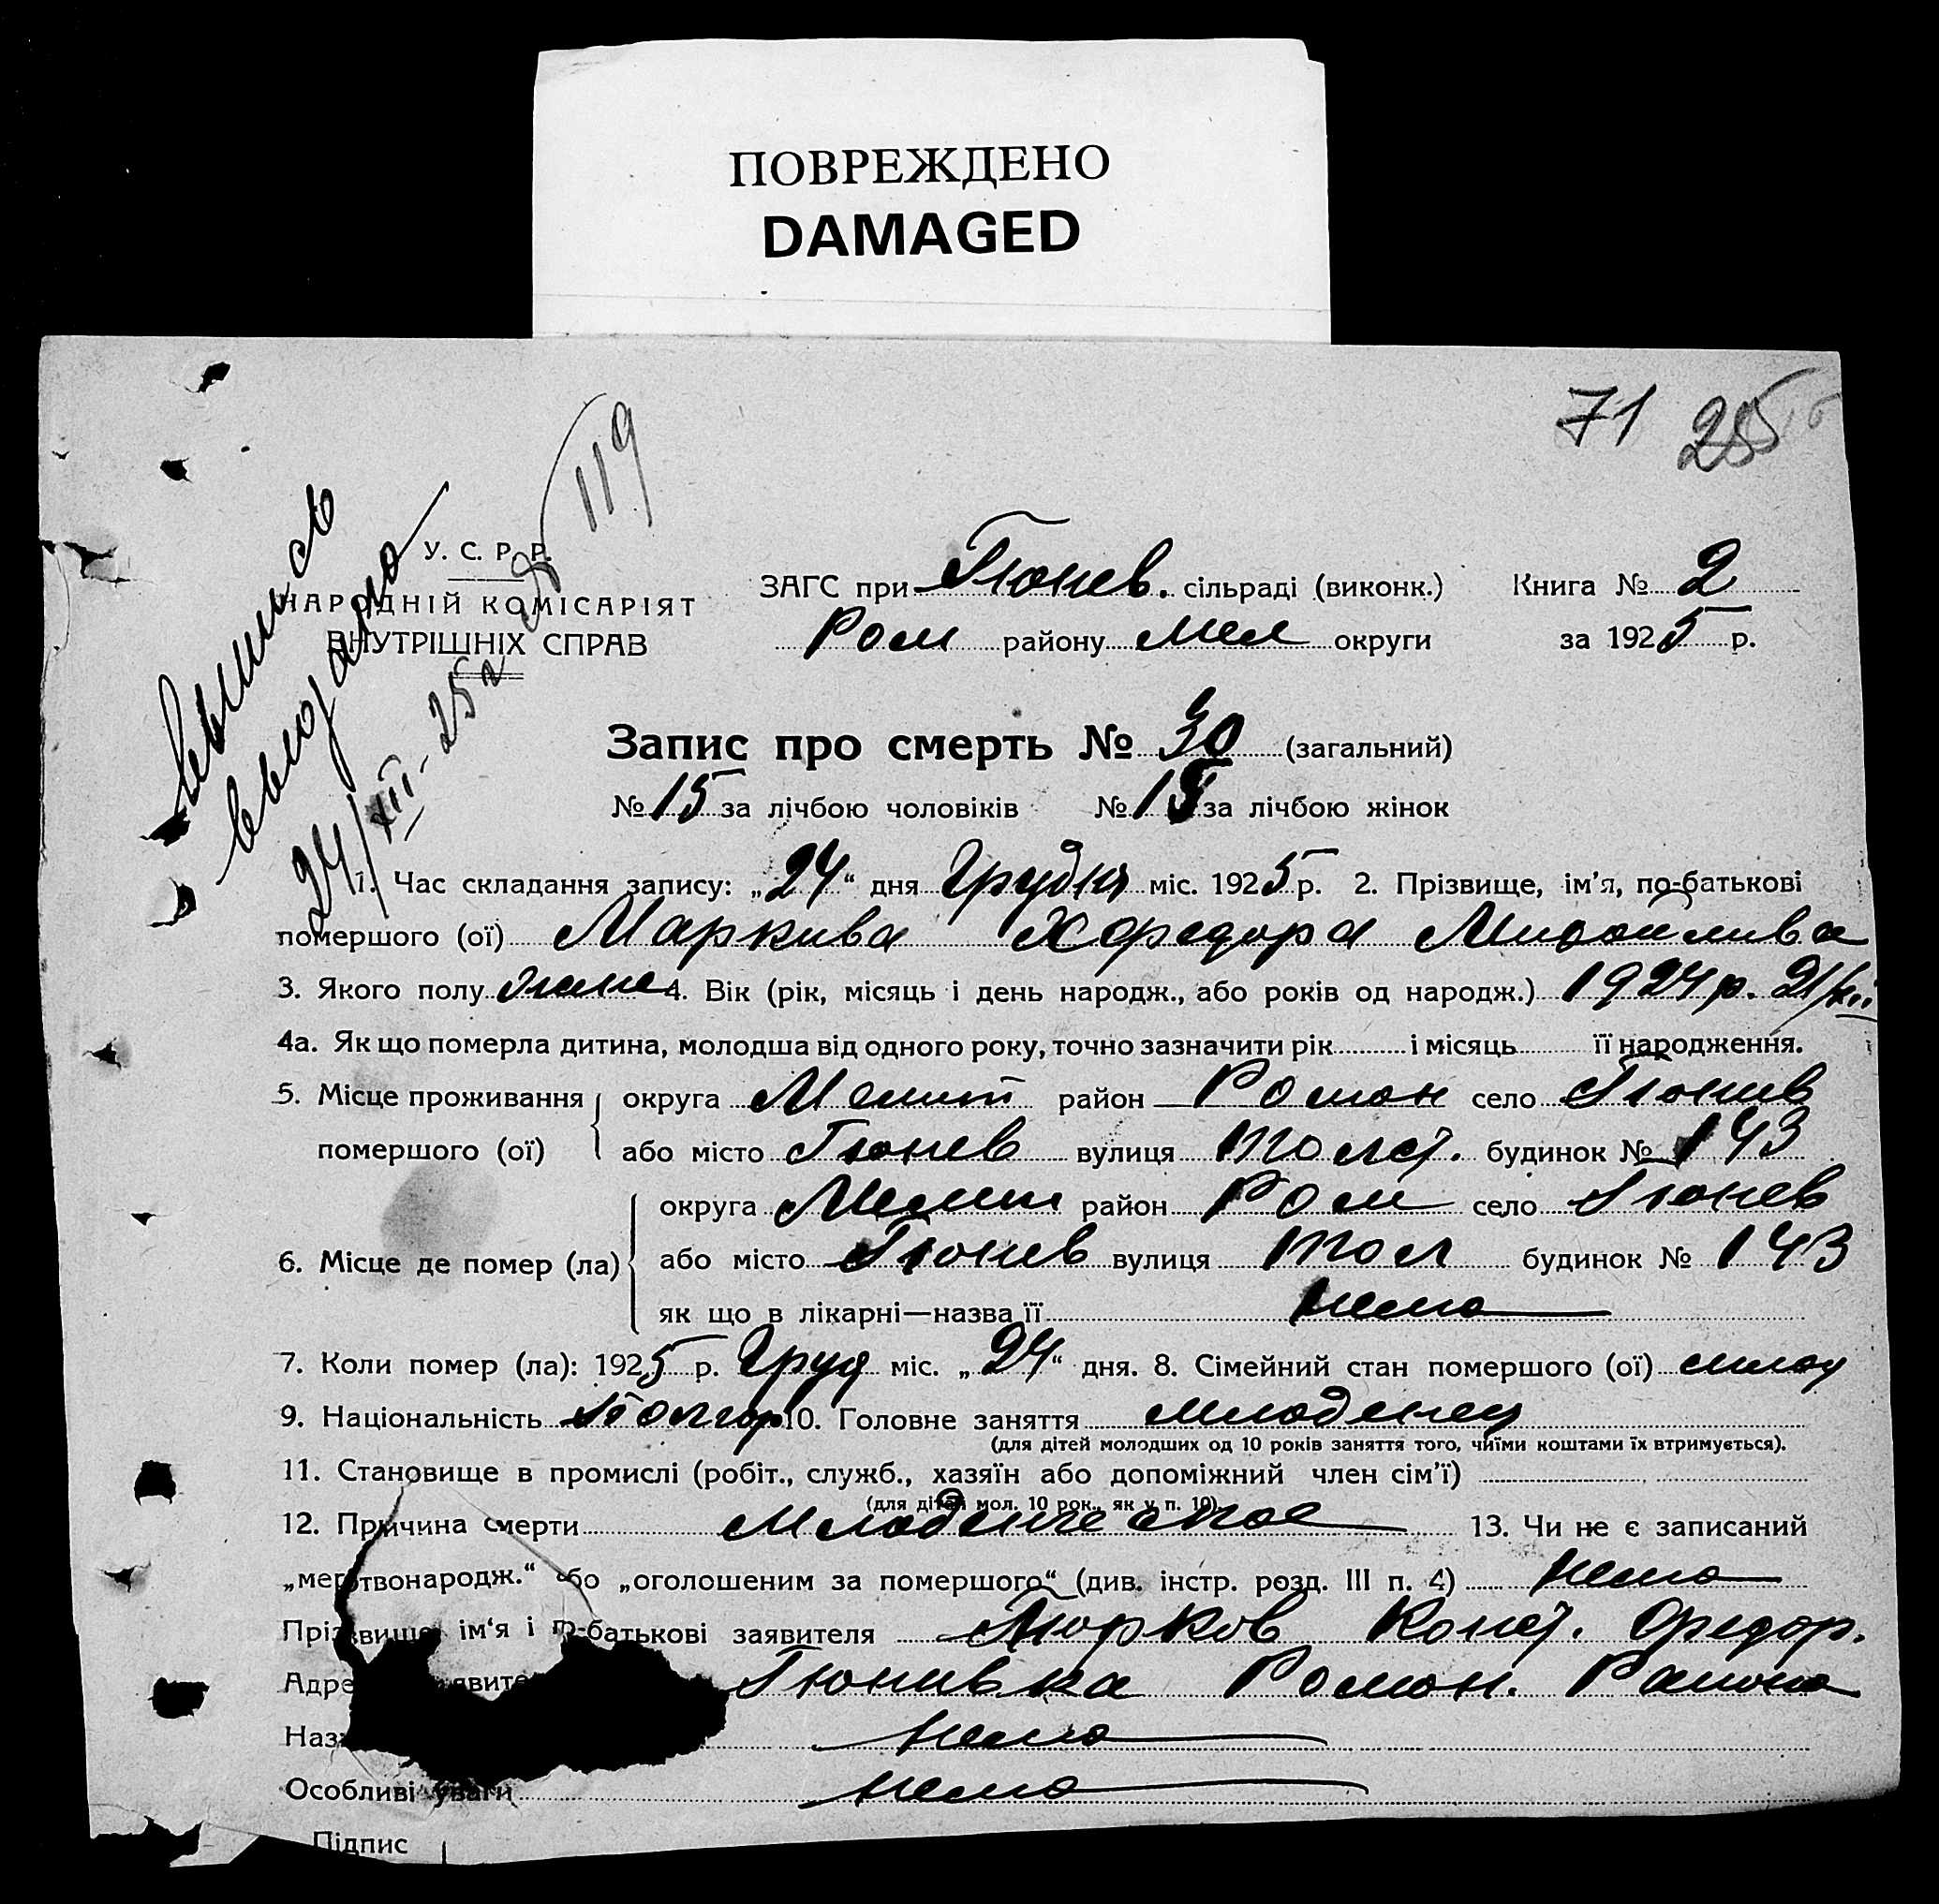 ПОВРЕЖДЕНО
DAMAGED
71 25
119
выпись
выдана
24/XII-25 г
У. С. Р. Р.
НАРОДНІЙ КОМІСАРІЯТ
ВНУТРІШНІХ СПРАВ
ЗАГС при Тюнев. сільраді (виконк.) Книга № 2
Ром району Мел округи за 1925 р.
Запис про смерть № 30 (загальний)
№ 15 за лічбою чоловіків № 15 за лічбою жінок
1. Час складання запису: „24“ дня Грудня міс. 1925 р. 2. Прізвище, ім’я, по-батькові
помершого (ої) Маркива
3. Якого полу 4. Вік (рік, місяць і день народж., або років од народж.) 1924 р. 21/XII
4а. Як що померла дитина, молодша від одного року, точно зазначити рік і місяць її народження.
5. Місце проживання округа Мелит район Роман село Тюнив
помершого (ої) або місто Тюнев вулиця Толст. будинок № 143
округа Мелит район Ром село Тюнев
6. Місце де помер (ла) або місто Тюнев вулиця Тол будинок № 143
як що в лікарні—назва її нема
7. Коли помер (ла): 1925 р. Груд міс. „24“ дня. 8. Сімейний стан помершого (ої) млад
9. Національність Болгар 10. Головне заняття младенец
(для дітей молодших од 10 років заняття того, чиїми коштами їх втримується).
11. Становище в промислі (робіт., служб., хазяїн або допоміжний член сім’ї)
(для дітей мол. 10 рок., як у п. 10).
12. Причина смерти Младенческое 13. Чи не є записаний
„мертвонародж.“ або „оголошеним за помершого“ (див. інстр. розд. III п. 4) нема
Прізвище, ім’я і по-батькові заявителя Марков Конст. Федор.
Адре явите Тюнивка Роман. Района
Наз нема
Особливі уваги нема
Підпис